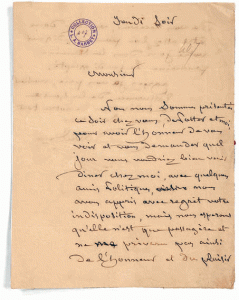 Jeudi Soir
COLLECTION
Monsieur
Nous nous sommes présentés
ce Soir chez vous de Potter et moi
pour avoir l'honneur de vous
voir et vous demander quel
jour vous voudriez bien venir
diner chez moi, avec quelques
amis politiques, nous
avons appris avec regret votre
indisposition, mais nous espérons
qu'elle n'est que passagère et
ne me privera pas ainsi
de l'honneur et du plaisir